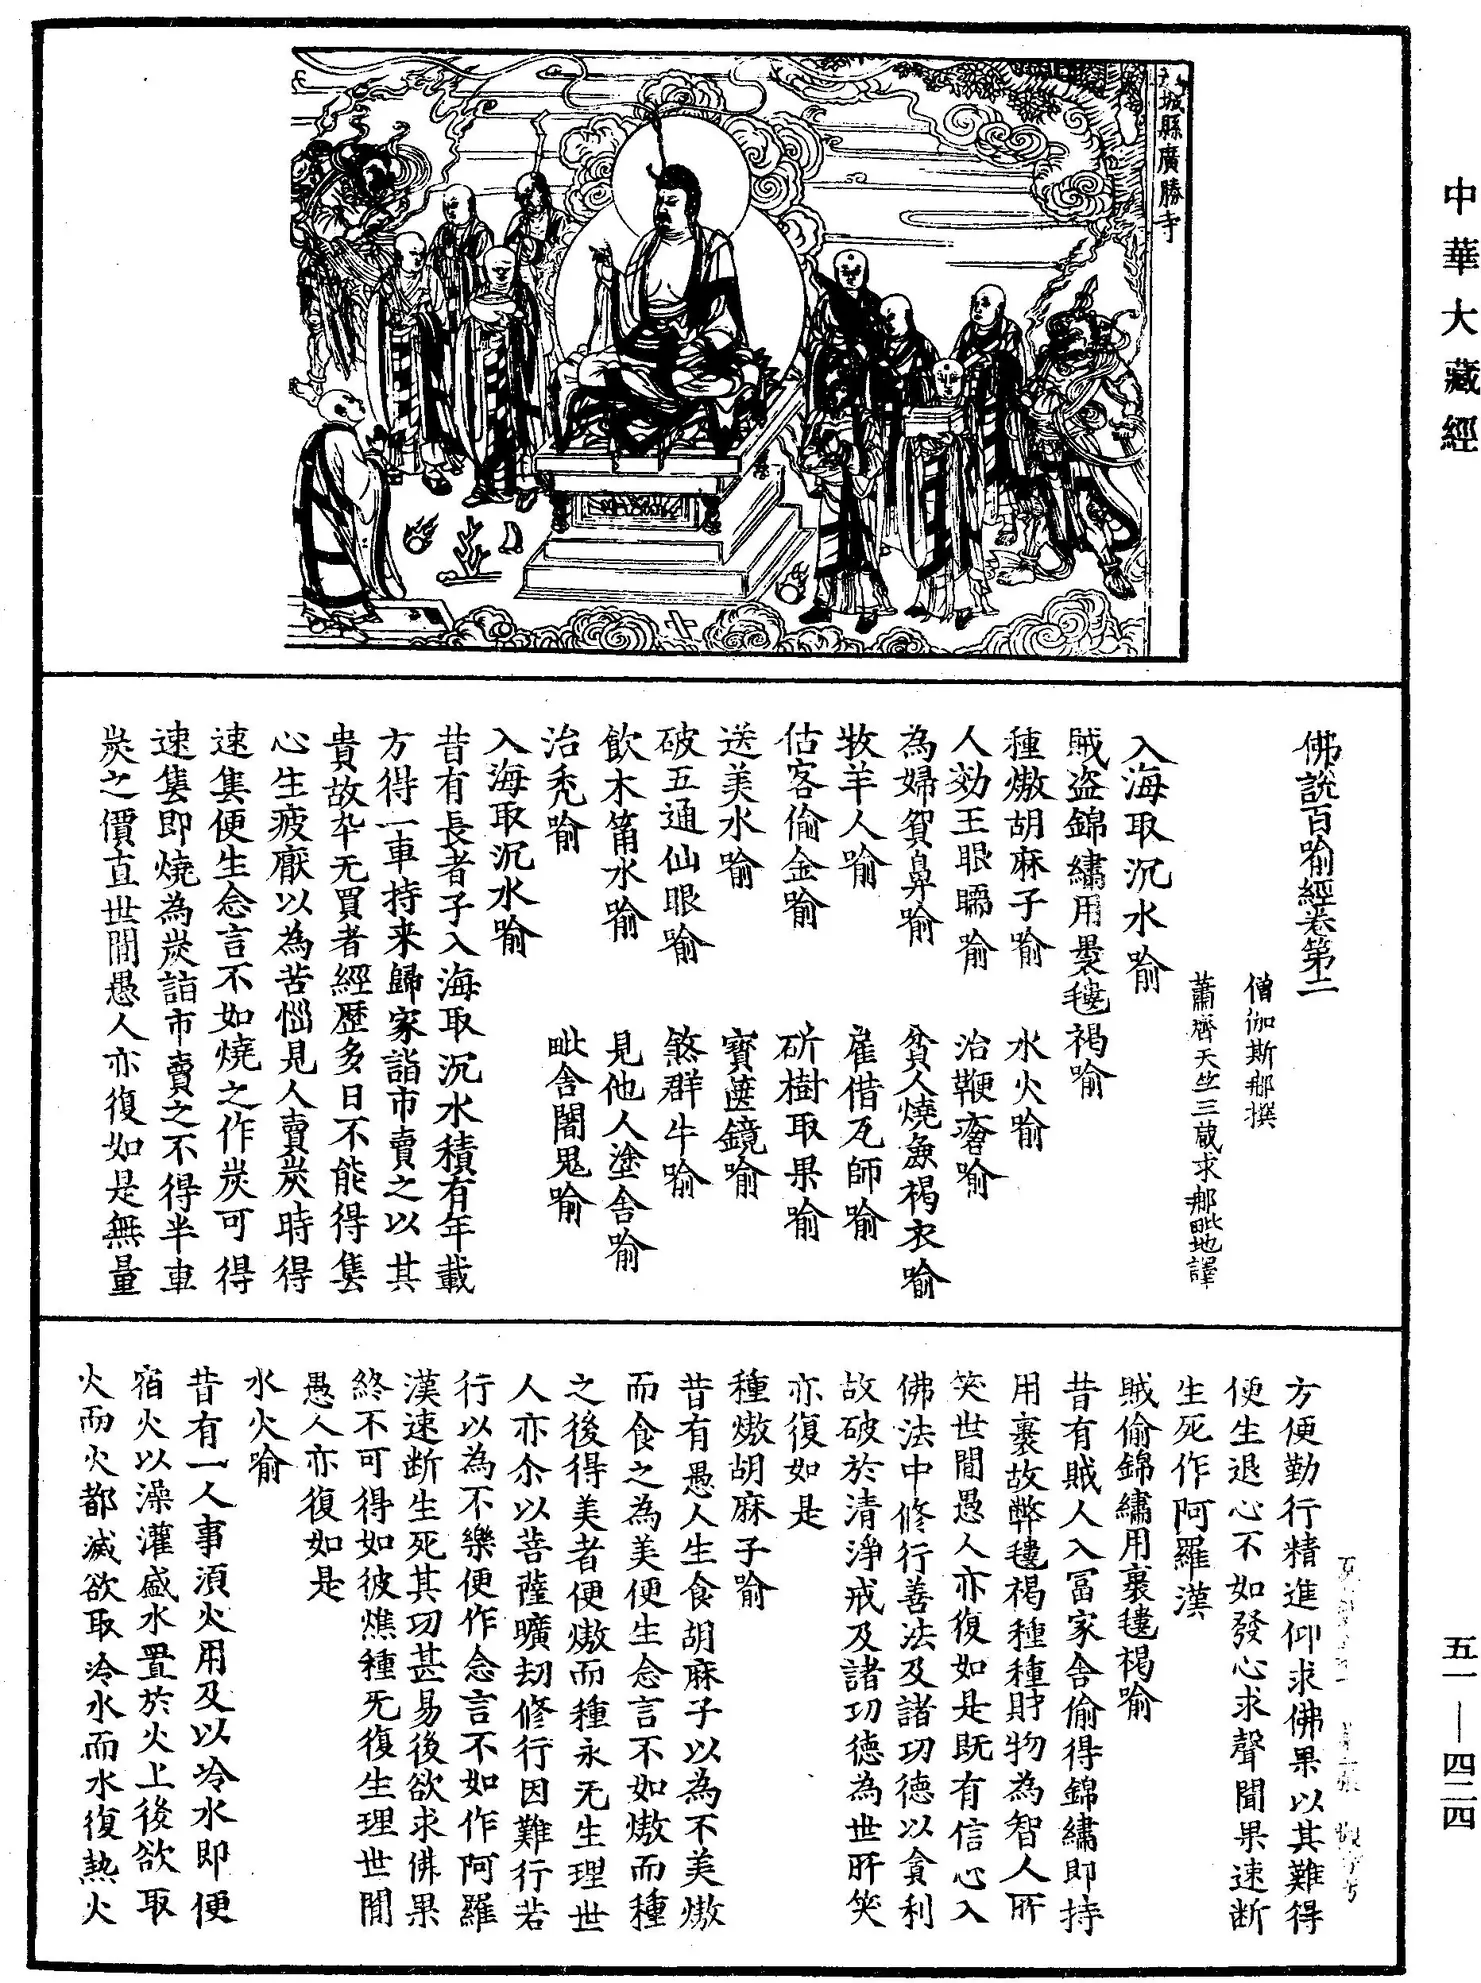 中華大藏經
城縣廣勝寺
佛說百喻經卷第二
僧伽斯那撰
蕭齊天竺三藏求那毗地譯
入海取沉水喻
賊盜錦繡用裹氀褐喻
種熬胡麻子喻　水火喻
人効王眼瞤喻　治鞭瘡喻
為婦貿鼻喻　貧人燒麁褐衣喻
牧羊人喻　雇借瓦師喻
估客偷金喻　斫樹取果喻
送美水喻　寶篋鏡喻
破五通仙眼喻　煞群牛喻
飲木筩水喻　見他人塗舍喻
治禿喻　毗舍闍鬼喻
入海取沉水喻
昔有長者子入海取沉水積有年載
方得一車持来歸家詣市賣之以其
貴故卒无買者經歷多日不能得售
心生疲厭以為苦惱見人賣炭時得
速售便生念言不如燒之作炭可得
速售即燒為炭詣市賣之不得半車
炭之價直世間愚人亦復如是無量
方便勤行精進仰求佛果以其難得
便生退心不如發心求聲聞果速断
生死作阿羅漢
賊偷錦繡用裹氀褐喻
昔有賊人入冨家舍偷得錦繡即持
用裹故弊氀褐種種財物為智人所
笑世間愚人亦復如是既有信心入
佛法中修行善法及諸功德以貪利
故破於清淨戒及諸功德為世所笑
亦復如是
種熬胡麻子喻
昔有愚人生食胡麻子以為不美熬
而食之為美便生念言不如熬而種
之後得美者便熬而種永无生理世
人亦尒以菩薩曠劫修行因難行苦
行以為不樂便作念言不如作阿羅
漢速断生死其功甚易後欲求佛果
終不可得如彼燋種无復生理世間
愚人亦復如是
水火喻
昔有一人事湏火用及以冷水即便
宿火以澡灌盛水置於火上後欲取
火而火都滅欲取冷水而水復熱火
五一—四二四